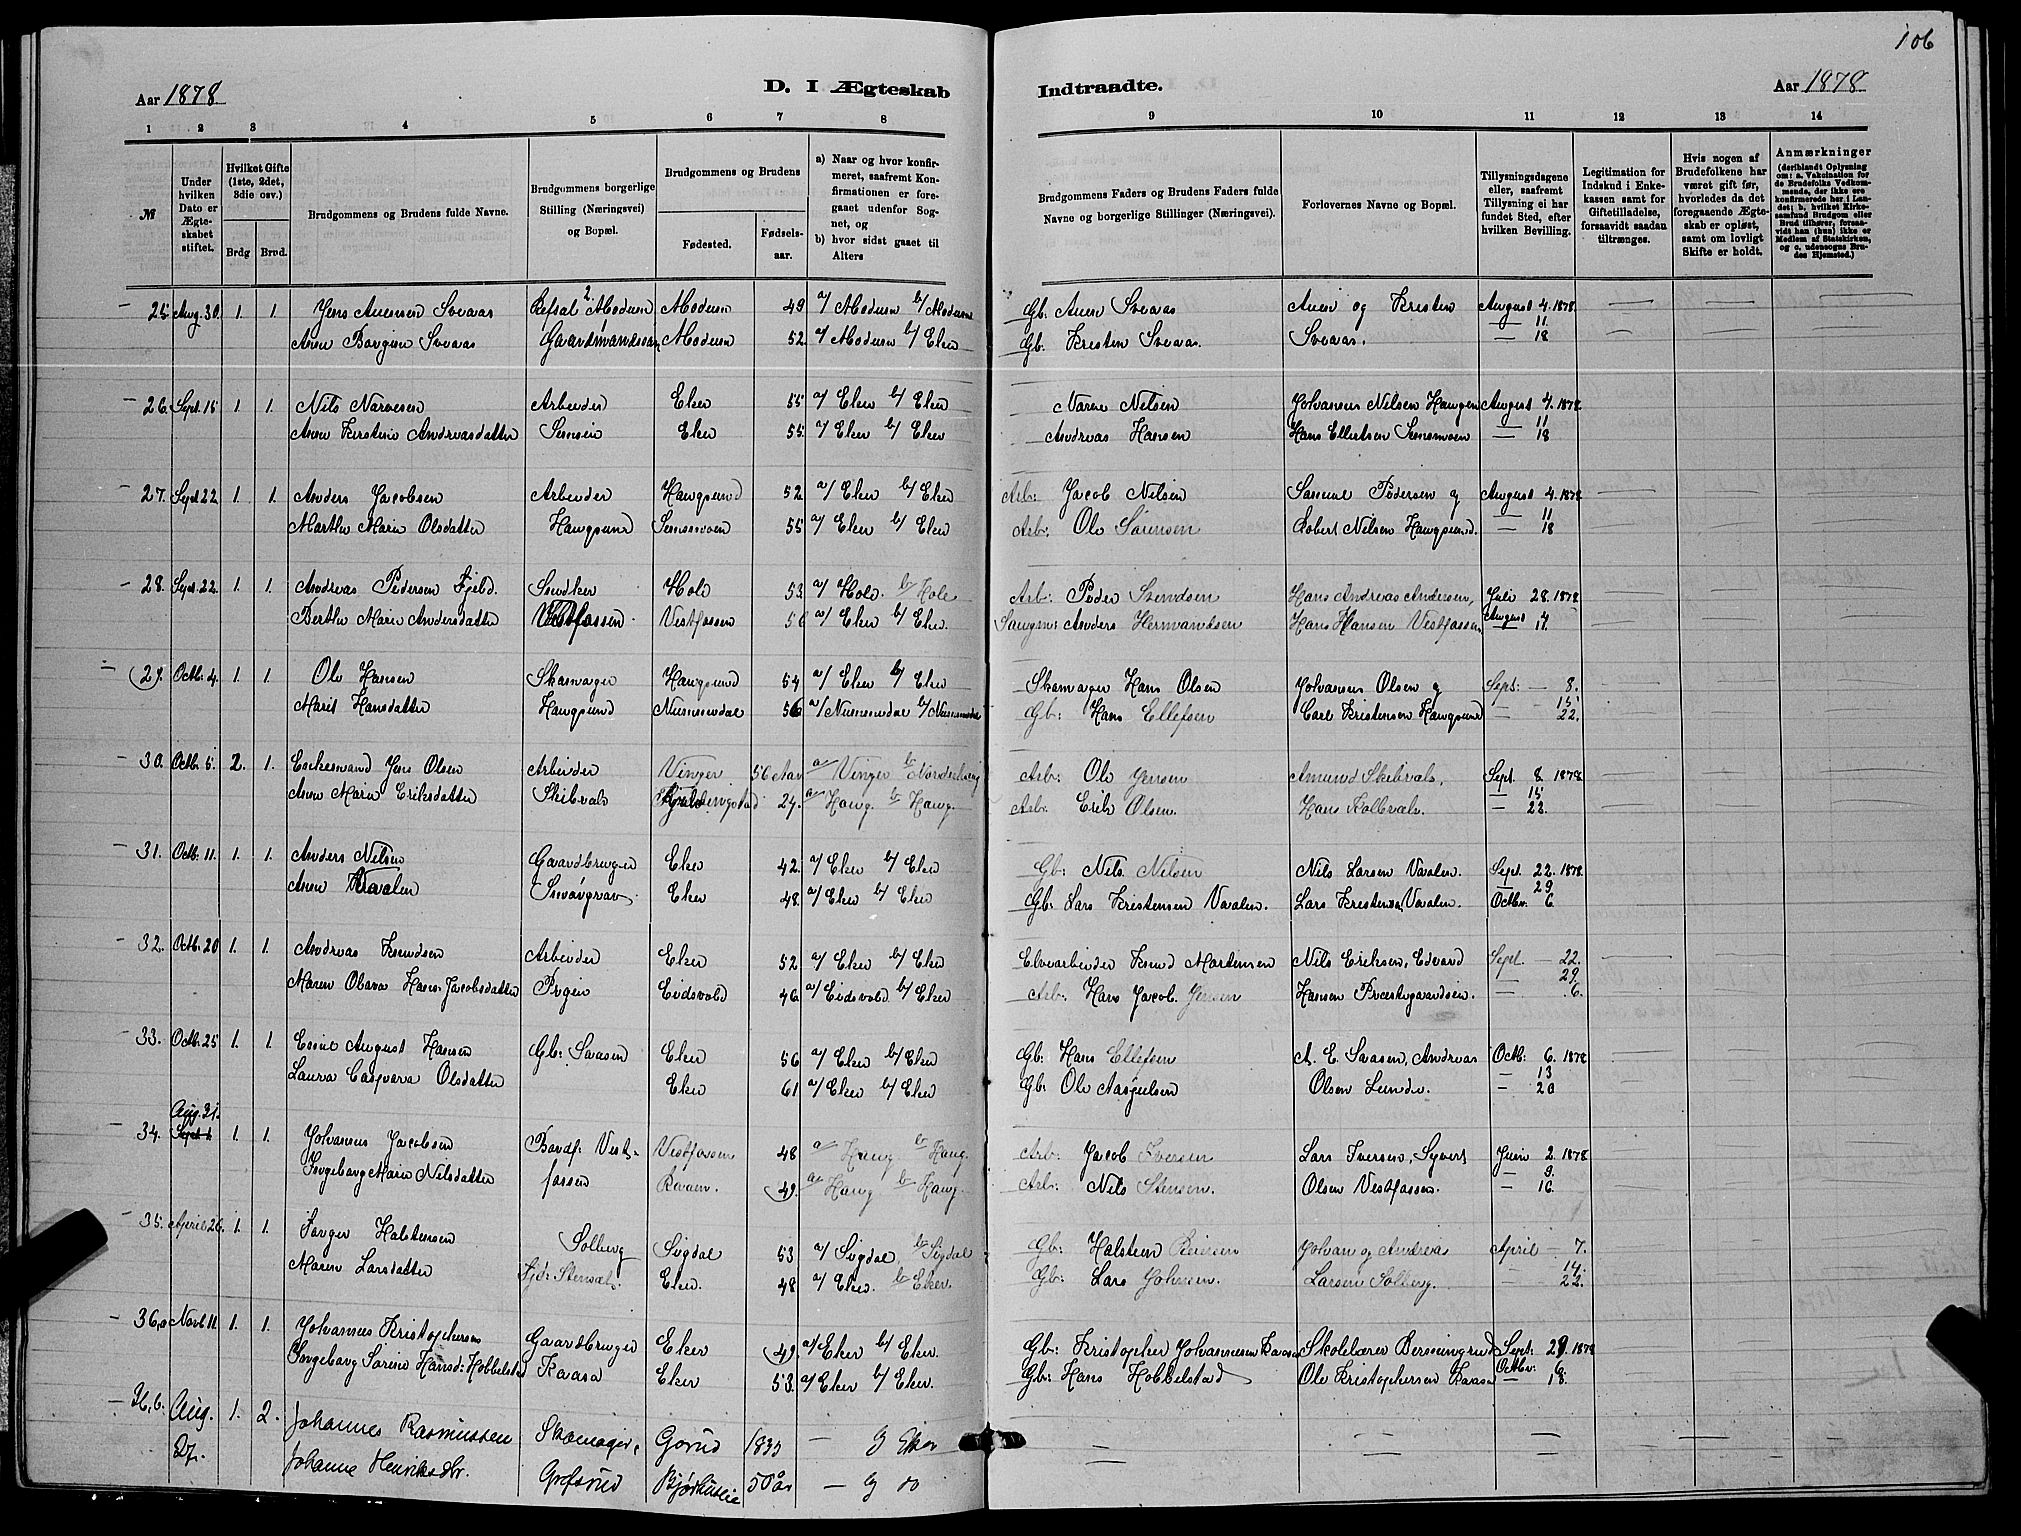 106
Aar 1878
D. I Ægteskab
Indtraadte.
Aar 1878
1 2 3 4 5 6 7 8
9 10 11 12 13 14
№
Under hvilken Dato er Ægte-skabet stiftet.
Hvilket Gifte (1ste, 2det, 3die osv.)
Brdg
Brud.
Brudgommens og Brudens fulde Navne.
Brudgommens borgerlige Stilling (Næringsvei) og Bopæl.
Brudgommens og Brudens
Fødested.
Fødsels-aar.
a) Naar og hvor konfir-meret, saafremt Kon-firmationen er fore-gaaet udenfor Sog-net, og
b) hvor sidst gaaet til Alters
Brudgommens Faders og Brudens Faders fulde Navne og borgerlige Stillinger (Næringsvei).
Forlovernes Navne og Bopæl.
Tillysningsdagene eller, saafremt Tillysning ei har fundet Sted, efter hvilken Bevilling.
Legitimation for Indskud i Enke-kassen samt for Giftetilladelse, forsaavidt saadan tiltrænges.
Hvis nogen af Brudefolkene har været gift før, hvorledes da det foregaaende Ægte-skab er opløst, samt om lovligt Skifte er holdt.
Anmærkninger
(deriblandt Oplysning om: a. Vakcination for de Brudefolks Vedkom-mende, der ikke ere konfirmerede her i Lan-det; b. hvilket Kirke-samfund Brudgom eller Brud tilhører, forsaa-vidt han (hun) ikke er Medlem af Statskirken, og c. udensogns Bru-des Hjemsted.)
25 Aug. 30. 1. 1. Jens Svaas Modum Modum 49 a/ Modum b/ Modum Gb. Svaas og Kristen August 4. 1878.
11.
Svaas Gaardmandssøn Modum 52. a/ Modum b/ Eker Gb. Kristen Svaas. Svaas. 18
26. Sept. 15 1. 1. Nils Narvesen Arbeider Eker 55 a/ Eker b/ Eker Narve Nilsen Johannes Nilsen Haugen August 4. 1878.
11
Anne Kirstine Andreasdatter Semsin Eker 55. a/ Eker b/ Eker Andreas Hansen Hans Ellertsen Semsmoen 18
27. Sept 22 1. 1. Anders Jacobsen Arbeider Haugsund 52 a/ Eker b/ Eker Arb: Jacob Nilsen Pedersen og August 4. 1878
11
Marthe Marie Olsdatter Haugsund Semsmoen 55 a/ Eker b/ Eker Arb: Ole Sørensen Robert Nilsen Haugsund. 18
28. Sept 22. 1. 1. Andreas Pedersen Fjeld. Snedker Hole 53. a/ Hole. b/ Hole Arb: Peder Hans Andreas Andersen, Juli 28. 1878
Berthe Marie Andersdatter Vestfossen Vestfossen 56 a/ Eker b/ Eker. Anders Hermandsen Hans Hansen Vestfossen August 4.
29. Octb. 4. 1. 1. Ole Hansen Skomager Haugsund 54 a/ Eker b/ Eker Skomager Hans Olsen Johannes Olsen og Sept: 8.
15
Marit Hansdatter Haugsund Numedal 56 a/ Numedal b/ Numedal Gb: Hans Ellefsen Carl Kristensen Haugsund 22.
30. Octb. 5. 2. 1. Enkemand Jens Olsen Arbeider Vinger 56 Aar a/ Vinger b/ Norderhaug Arb: Ole Jensen Amund Skibvals, Sept. 8. 1878
15
Anne Marie Eriksdatter Skibvals 24. a/ Haug. b/ Haug. Arb: Erik Olsen. Hans Kolbræk. 22.
31. Octb. 11. 1. 1. Anders Nilsen Gaardbruger Eker 42. a/ Eker b/ Eker Gb: Nils Nilsen Nils Larsen Vaalen. Sept. 22. 1878
29
Anne Vaalen Eker 48 a/ Eker b/ Eker Gb. Lars Kristensen Vaalen. Lars Kristensen Vaalen. Octbr. 6.
32. Octb. 20 1. 1. Andreas Knudsen Arbeider Eker 52 a/ Eker b/ Eker Elvearbeider Knud Martensen Nils Eriksen, Edvard Sept. 22.
29
Maren Olava Hans-Jacobsdatter Pigen Eidsvold 46 a/ Eidsvold b/ Eker Arb: Hans Jacob Jensen Hansen Præstegaardseie. 6.
33. Octb. 25 1. 1. August Hansen Gb: Saasen Eker 56 a/ Eker b/ Eker Gb: Hans Ellefsen A. E. Saasen, Andreas Octb: 6. 1878
13
Laura Caspara Olsdatter Eker 61 a/ Eker b/ Eker Gb: Ole Olsen Lunde. 20
Aug. 31.
34. Sept 1 1. 1. Johannes Jacobsen Vest- Vestfossen 48 a/ Haug b/ Haug. Arb: Jacob Iversen Lars Iversen, Syvert Juni 2. 1878
9.
Ingeborg Marie Nilsdatter fossen 49. a/ Haug b/ Haug. Arb: Nils Stensen. Olsen Vestfossen. 16.
35. April 26. 1. 1. Torger Halstensen Solberg Sigdal 53 a/ Sigdal b/ Sigdal Gb: Halsten Johan og Andreas April 7.
14.
Maren Larsdatter Eker. 48 a/ Eker. b/ Eker. Gb: Lars Johnsen. Larsen Solberg. 22.
36,a Novb. 11. 1. 1. Johannes Kristophersen Gaardbruger Eker 49. a/ Eker b/ Eker. Gb: Kristopher Johannesen Kaasa Skolelærer Sept: 29. 1878
Octbr: 6.
Ingeborg Sørine Hansd: Hobbelstad Kaasa Eker 53. a/ Eker b/ Eker. Gb: Hans Hobbelstad Ole Kristophersen Kaasa 18.
36,b. Aug. 1. 2. Johannes Rasmussen Skomager, Gorud 1835 — b/ Eker
27. Johanne Henriksdtr. Grefsrud 50 år — b/ do